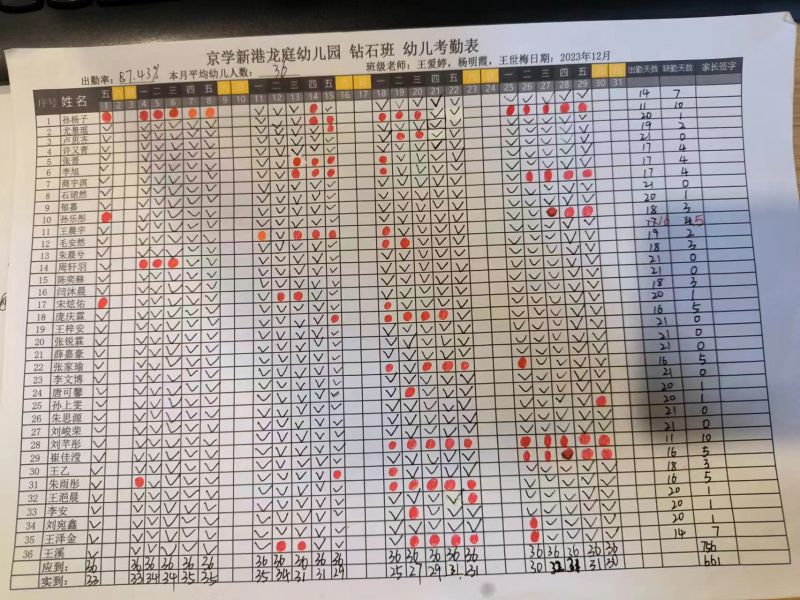 京学新港龙庭幼儿园 钻石班 幼儿考勤表
出勤率: 87.43% 本月平均幼儿人数: 36 班级老师: 王爱婷, 杨明霞, 王世梅日期: 2023年12月
序号 姓名 五 六 日 一 二 三 四 五 六 日 一 二 三 四 五 六 日 一 二 三 四 五 六 日 一 二 三 四 五 六 日 出勤天数 缺勤天数 家长签字
1 2 3 4 5 6 7 8 9 10 11 12 13 14 15 16 17 18 19 20 21 22 23 24 25 26 27 28 29 30 31 14 7
1 孙杨子 11 10
2 尤景瑶 20 1
3 卢思齐 19 2
4 许又萱 21 0
5 张晋 17 4
6 李旭 17 4
7 商宇淇 17 4
8 石珺然 21 0
9 郁嘉 20 1
10 孙乐彤 18 3
11 王晨宇 16 5
12 毛安然 19 2
13 朱晨兮 18 3
14 周轩羽 21 0
15 陈奕赫 21 0
16 闫沐晨 18 3
17 宋炫佑 20 1
18 庞庆霖 16 5
19 王梓安 21 0
20 张锐霖 21 0
21 薛嘉豪 21 0
22 张家瑜 16 5
23 李文博 21 0
24 唐可馨 20 1
25 孙上雯 20 1
26 朱思源 21 0
27 刘峻荣 21 0
28 刘芊彤 11 10
29 崔佳滢 16 5
30 王乙 18 3
31 朱雨彤 16 5
32 王浥晨 20 1
33 李安 20 1
34 刘宛鑫 20 1
35 王泽金 14 7
36 王溪
应到: 36 36 36 36 36 36 36 36 36 36 36 36 36 36 36 36 36 36 36 36 36 756
实到: 33 33 34 34 35 35 35 34 31 31 29 25 27 29 31 31 30 32 31 31 30 661